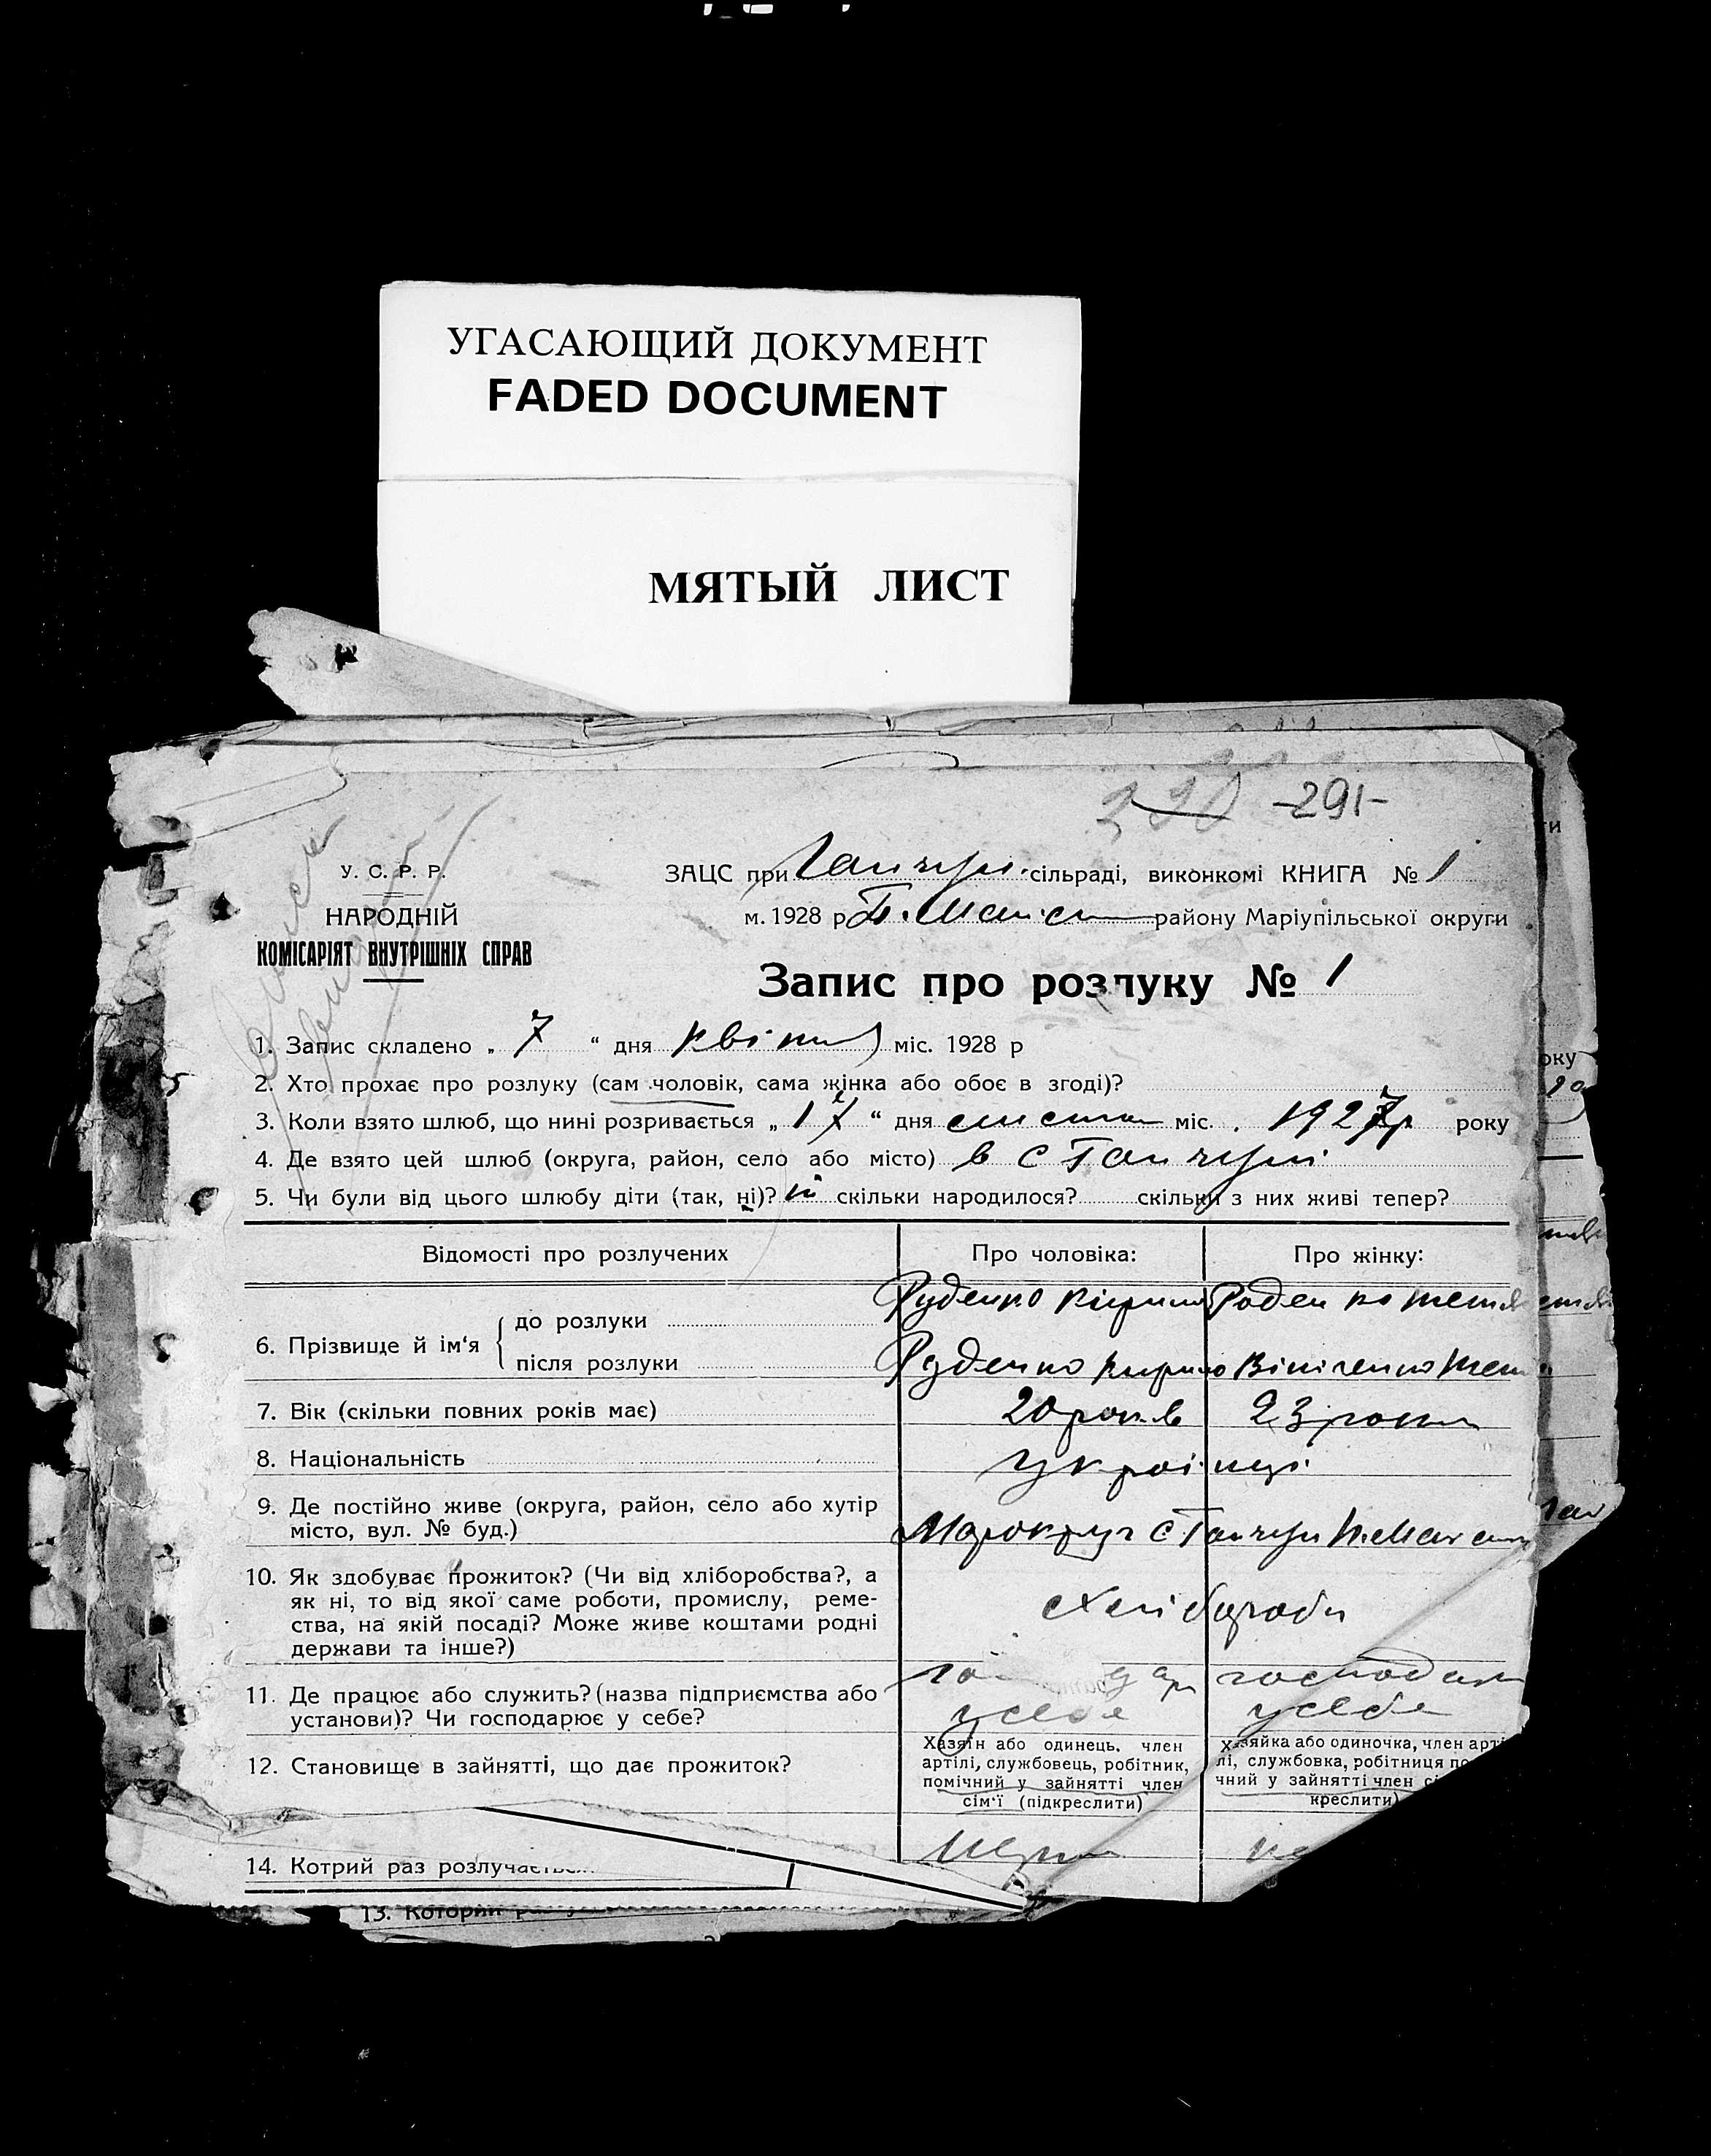 УГАСАЮЩИЙ ДОКУМЕНТ
FADED DOCUMENT
МЯТЫЙ ЛИСТ
-291-
У. С. Р. Р.
НАРОДНІЙ
КОМІСАРІЯТ ВНУТРІШНІХ СПРАВ
ЗАЦС при Гайчул. сільраді, виконкомі КНИГА № 1
м. 1928 р району Маріупільської округи
Запис про розлуку № 1
1. Запис складено „ 7 “ дня квітня міс. 1928 р
2. Хто прохає про розлуку (сам чоловік, сама жінка або обоє в згоді)?
3. Коли взято шлюб, що нині розривається „ 17 “ дня листоп міс. 1927р року
4. Де взято цей шлюб (округа, район, село або місто) в с Гайчулі
5. Чи були від цього шлюбу діти (так, ні)? ні скільки народилося? скільки з них живі тепер?
Відомості про розлучених
Про чоловіка:
Про жінку:
6. Прізвище й ім'я
до розлуки
Руденко Кирило
Руденко
після розлуки
Руденко Кирило
Вініченко
7. Вік (скільки повних років має)
20 років
23 роки
8. Національність
українці
9. Де постійно живе (округа, район, село або хутір
місто, вул. № буд.)
Марокруг с Гайчул
10. Як здобуває прожиток? (Чи від хліборобства?, а
як ні, то від якої саме роботи, промислу, реме-
ства, на якій посаді? Може живе коштами родні
держави та інше?)
Хліборобн
11. Де працює або служить? (назва підприємства або
установи)? Чи господарює у себе?
у себе
господар
у себе
12. Становище в зайнятті, що дає прожиток?
Хазяїн або одинець, член
артілі, службовець, робітник,
помічний у зайнятті член
сім'ї (підкреслити)
Хазяйка або одиночка, член арті
лі, службовка, робітниця по
чний у зайнятті член сі
креслити)
14. Котрий раз розлучається
13. Которий